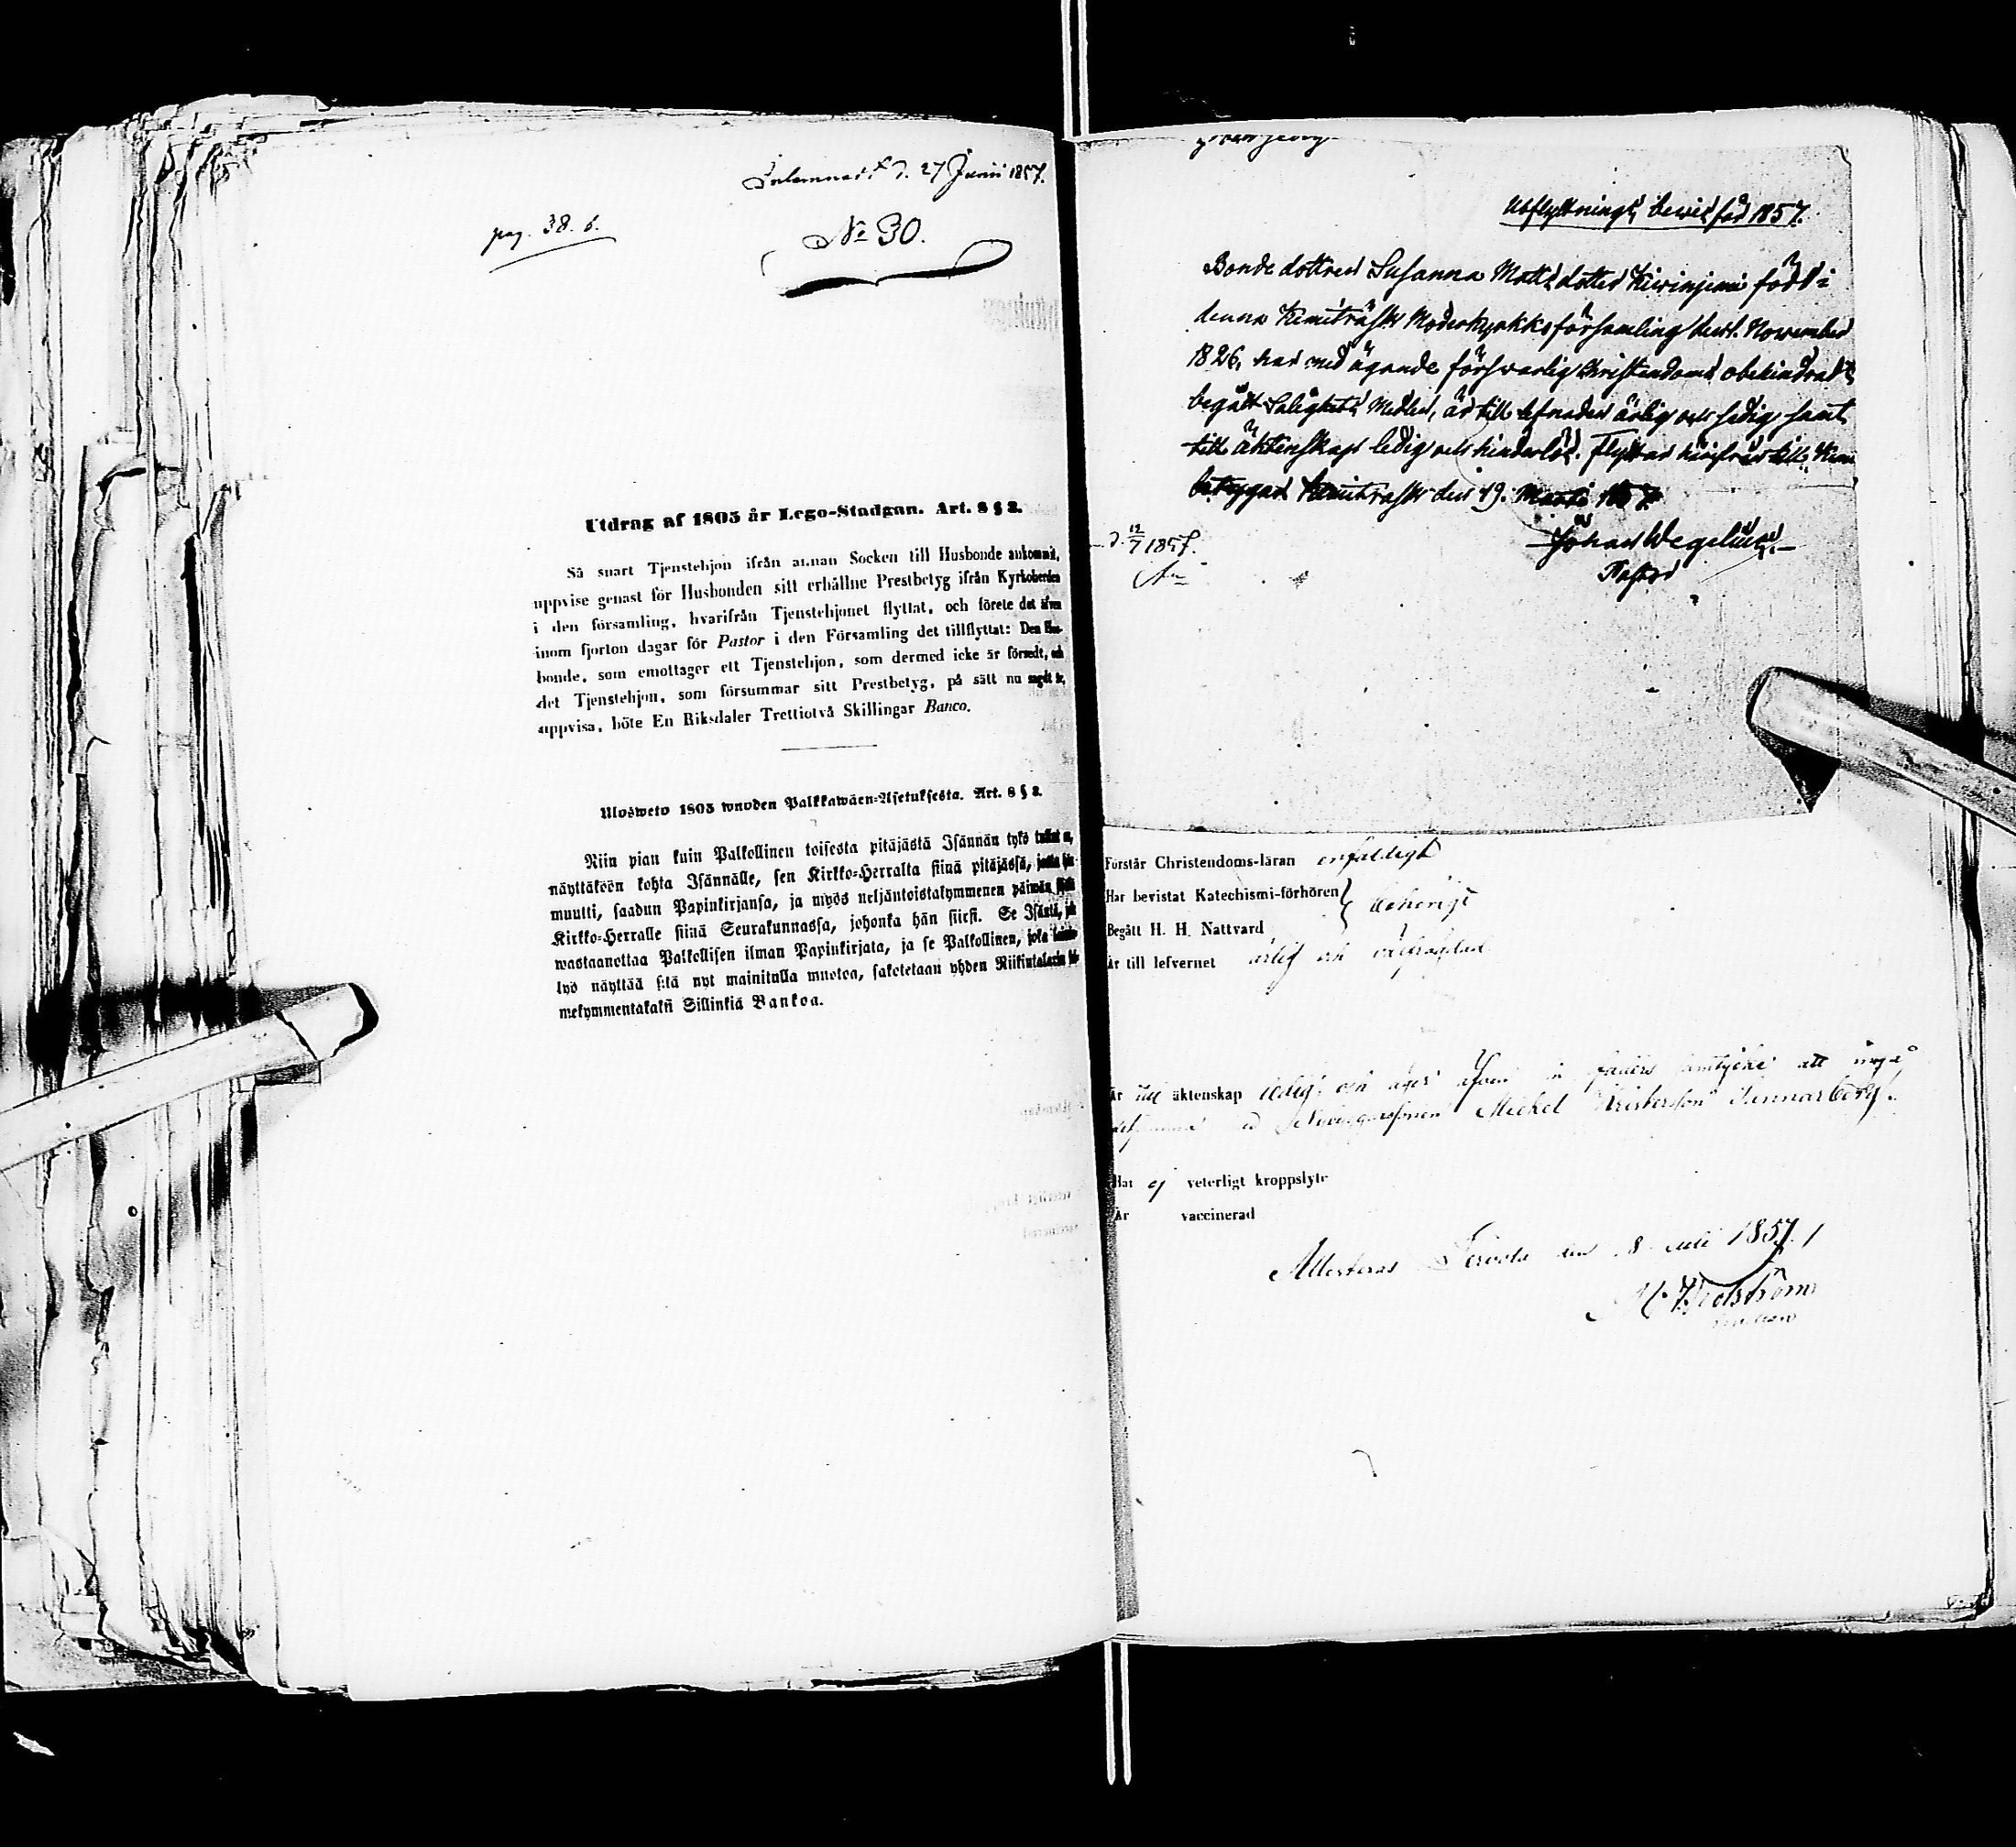 Inlemnadt d. 27 Junii 1857.
pag. 38. 6.
No 30.
Utdrag af 1805 år Lego-Stadgan. Art. 8 § 2.
Så snart Tjenstehjon ifrån annan Socken till Husbonde ankommit,
uppvise genast för Husbonden sitt erhållne Prestbetyg ifrån Kyrkoherden
i den församling, hvarifrån Tjenstehjonet flyttat, och förete det äfven
inom fjorton dagar för Pastor i den Församling det tillflyttat: Den Hus-
bonde, som emottager ett Tjenstehjon, som dermed icke är försedt, och
det Tjenstehjon, som försummar sitt Prestbetyg, på sätt nu sagdt är,
uppvisa, böte En Riksdaler Trettiotvå Skillingar Banco.
Ulosweto 1805 wuoden Palkkawäen-Asetuksesta. Art. 8 § 2.
Niin pian kuin Palkollinen toisesta pitäjästä Isännän tykö tullut on,
näyttäköön kohta Isännälle, sen Kirkko-Herralta siinä pitäjässä, josta hän
muutti, saadun Papinkirjansa, ja myös neljäntoistakymmenen päiwän sisällä
Kirkko-Herralle siinä Seurakunnassa, johonka hän siirsi. Se Isäntä, joka
wastaanottaa Palkollisen ilman Papinkirjata, ja se Palkollinen, joka
lyö näyttää sitä nyt mainitulla muotoa, sakotetaan yhden Riikintalarin
mekymmentäkaksi Sillinkiä Bankoa.
Utflyttnings bevis för 1857.
Bonde dottren Susanna Matts dotter Kiwinjemi född i
denna Kemiträsks Moderkyrkoförsamling den 1. November
1826, har med ägande försvarlig Christendoms obehindradt
begått Salighets Medlen, är till lefnaden ärlig och sedig samt
till äktenskap ledig och hinderlös. Flyttar härifrån till Kemi
betygar Kemiträsk den 19. Martii 1857.
Johan Wegelius
Pastor
d. 12/7 1857.
Förstår Christendoms-läran enfaldigt
Har bevistat Katechismi-förhören } behörigt
Begått H. H. Nattvard
Är till lefvernet ärlig och välfrägdad
Är till äktenskap ledig, och äger äfven sin faders samtycke att ingå
detsamma med Nybyggaresonen Michel Christersson Junnarberg.
Har ej veterligt kroppslyte
Är vaccinerad
Attesteras Tervola den 8 Juli 1857.